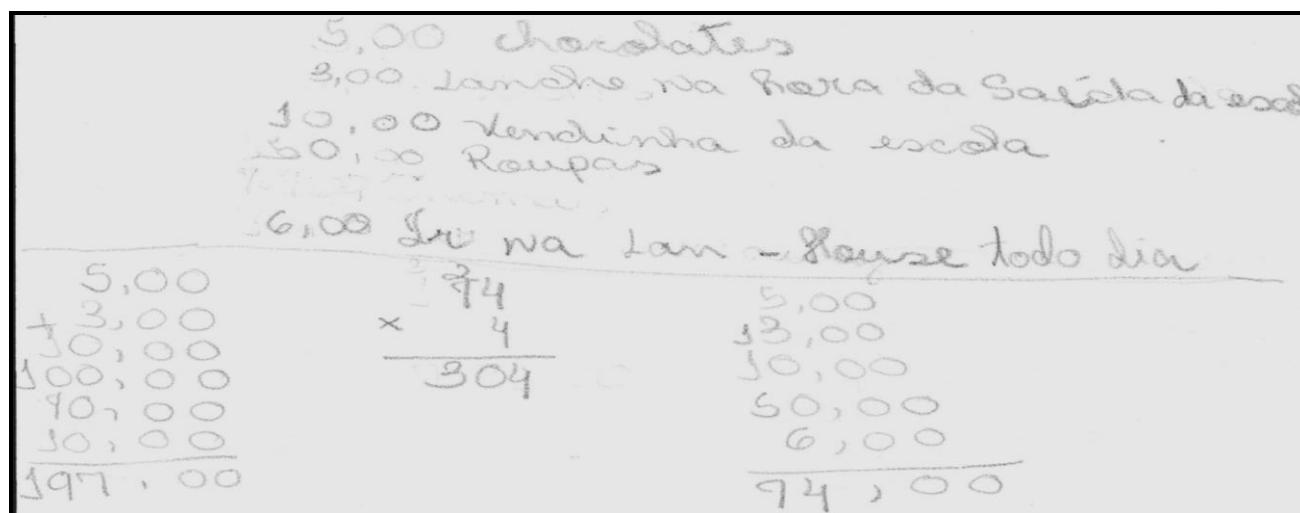 5,00 chocolates
3,00 Lanche, na hora da Saída da esco
10,00 Vendinha da escola
50,00 Roupas
6,00 Ir na Lan - House todo dia
5,00
+ 3,00
10,00
100,00
70,00
10,00
197,00
74
× 4
304
5,00
13,00
10,00
50,00
6,00
74,00